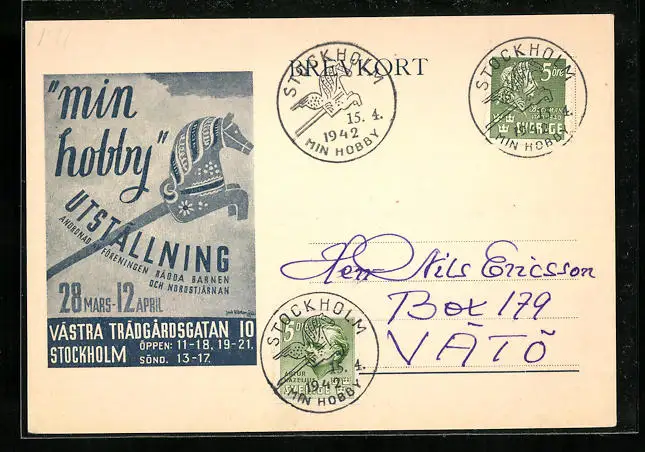 "min
hobby"
UTSTÄLLNING
ANORDNAD AV FÖRENINGEN RÄDDA BARNEN
OCH NORDSTJÄRNAN
28 MARS-12 APRIL
VÄSTRA TRÄDGÅRDSGATAN 10
STOCKHOLM ÖPPEN: 11-18, 19-21.
SÖND. 13-17.
BREVKORT
STOCKHOLM
15. 4.
1942
MIN HOBBY
STOCKHOLM
5 ÖRE
4.
SVERIGE
MIN HOBBY
Herr Nils Ericsson
Box 179
VÄTÖ
STOCKHOLM
5 ÖRE
15. 4.
ARTUR
HAZELIUS
1942
SVERIGE
MIN HOBBY